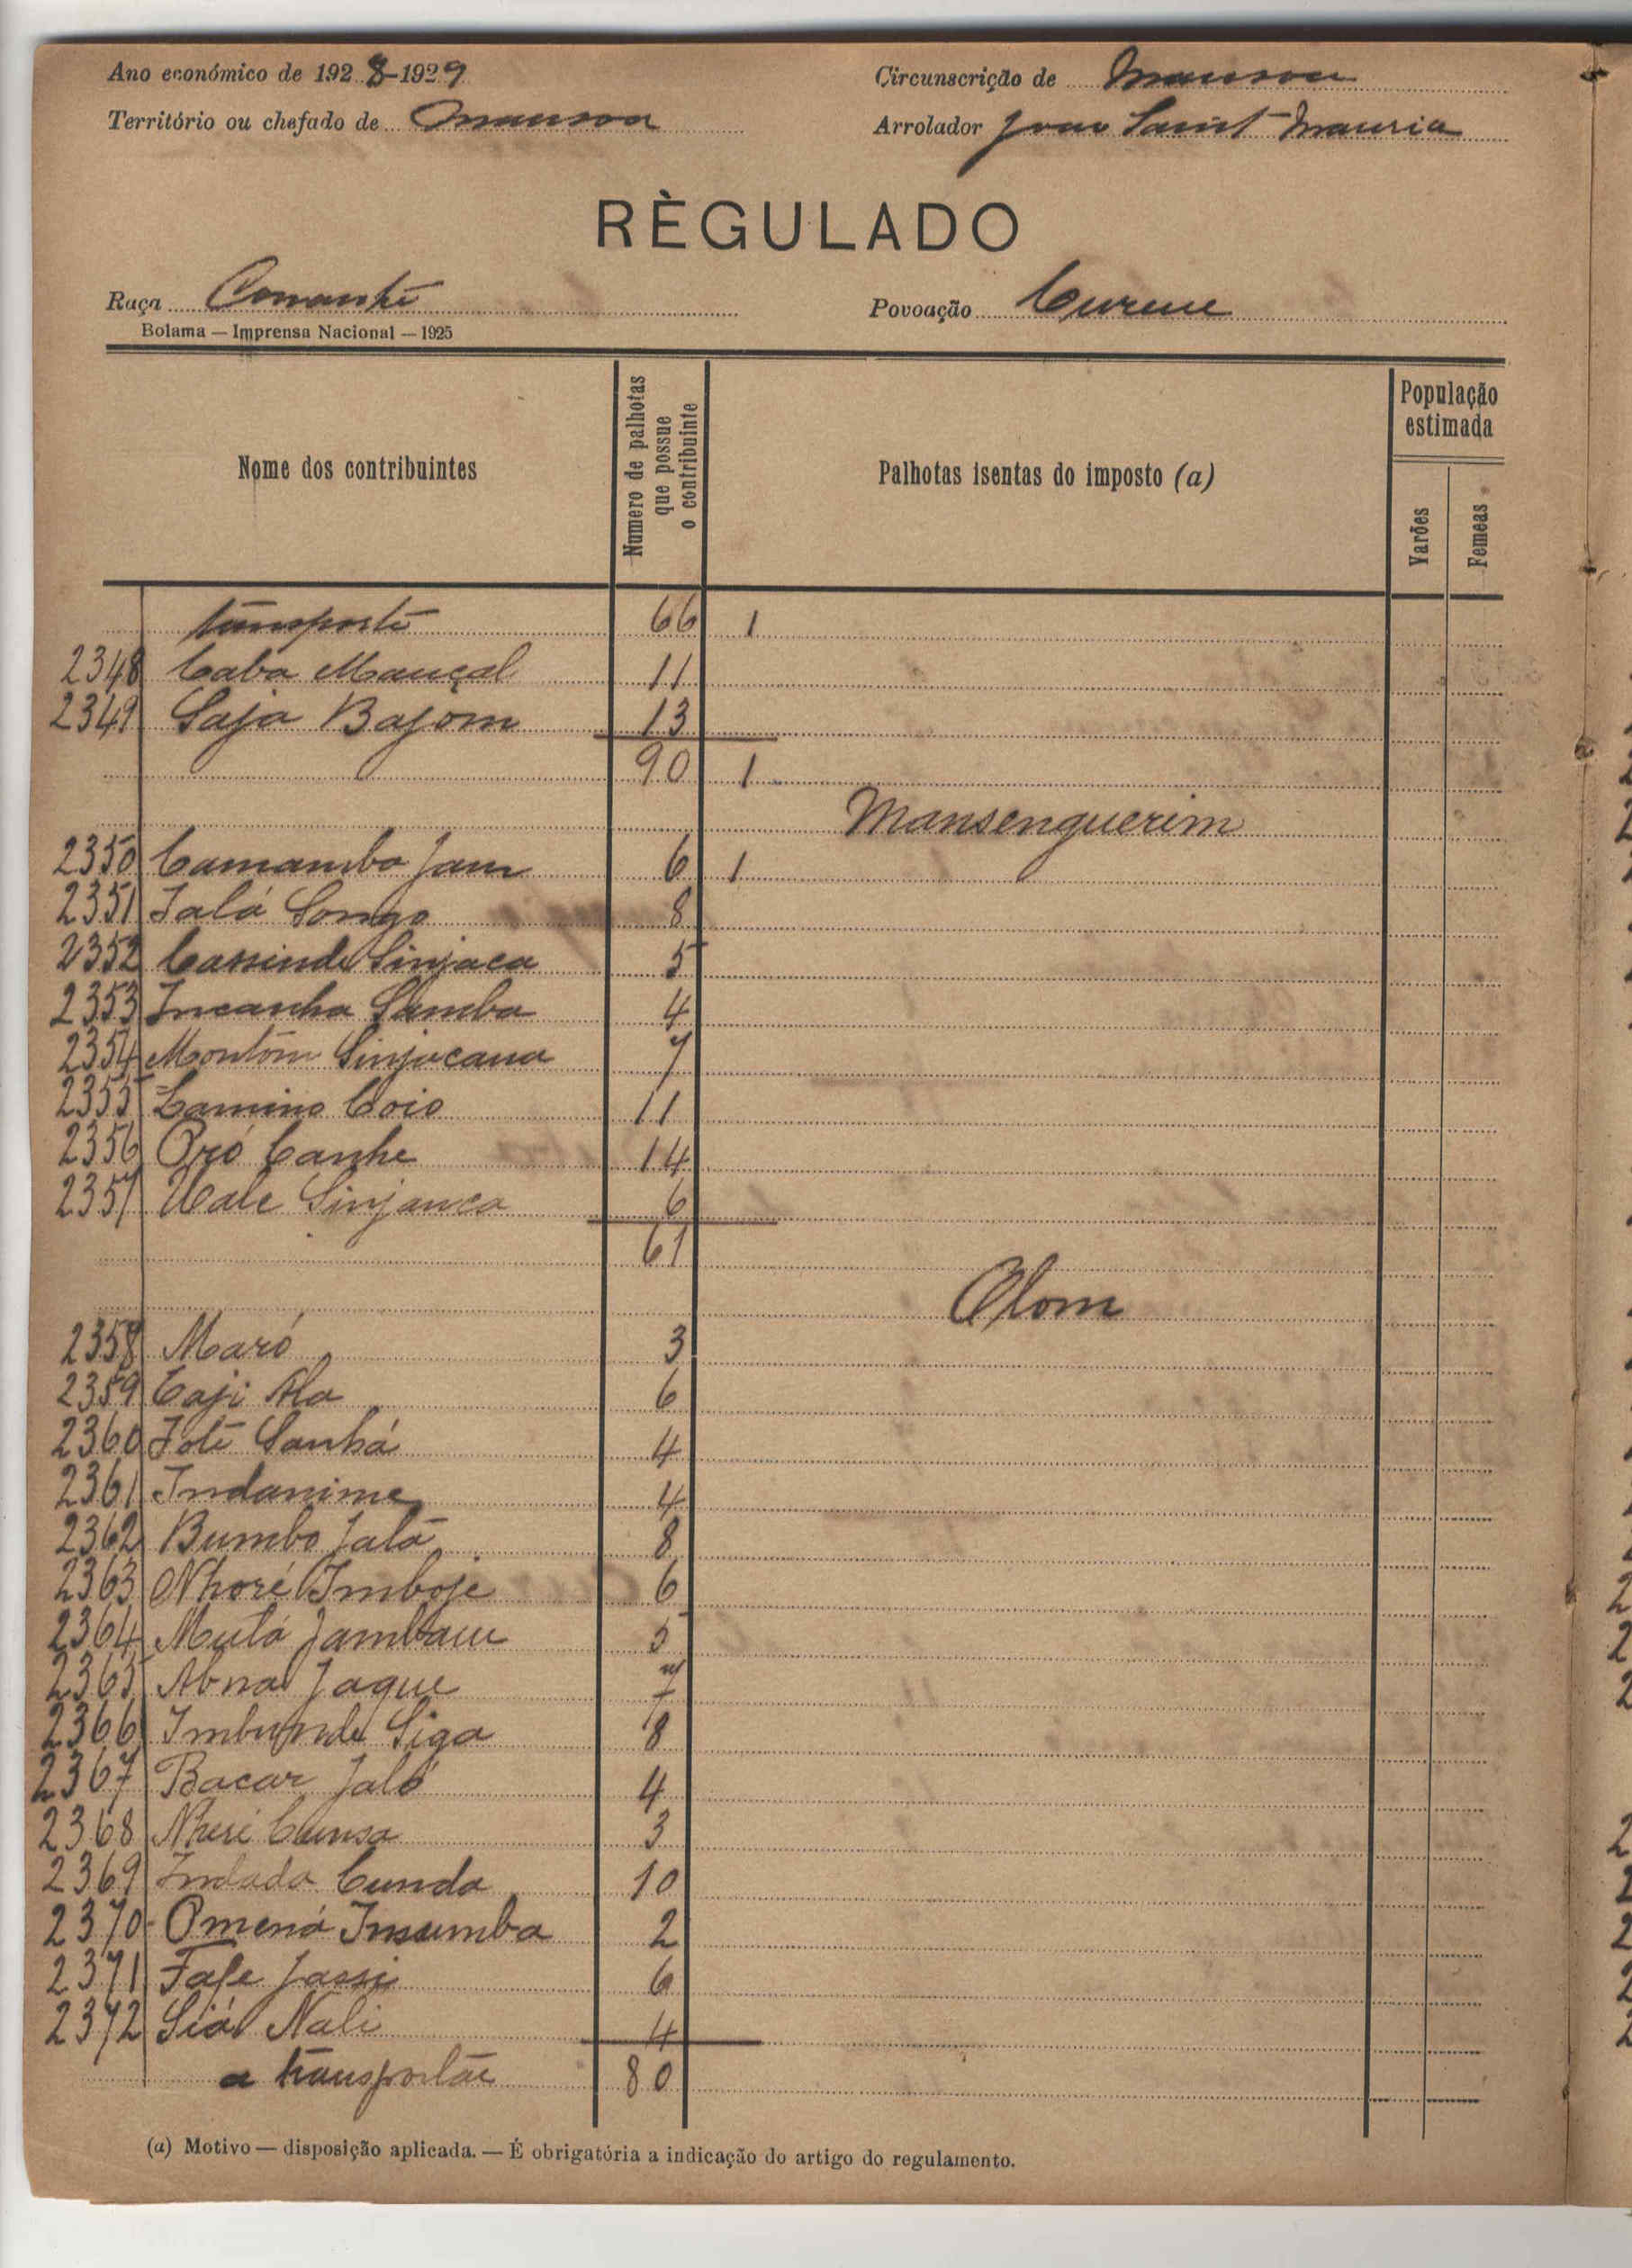 Ano económico de 1928-1929
Circunscrição de Mansoa
Território ou chefado de Mansoa
Arrolador João Saint Maurice
RÈGULADO
Raça
Povoação
Bolama — Imprensa Nacional — 1925
Nome dos contribuintes
Numero de palhotas que possue o contribuinte
Palhotas isentas do imposto (a)
População estimada
Varões
Femeas
transporte 66 1
2348 Caba Mançal 11
2349 Saja Bajom 13
90 1
Mansenguerim
2350 Camambo Jam 6 1
2351 Jalá Songo 8
2352 Cassinde Sinjaca 5
2353 Incanha Samba 4
2354 Montóm Sinjacana 7
2355 Lamino Coio 11
2356 Oró Canhe 14
2357 Uale Sinjanca 6
61
Olom
2358 Maró 3
2359 Caji Ala 6
2360 Joté Sanhá 4
2361 Indanime 4
2362 Bumbo Jalá 8
2363 Nhoré Imboje 6
2364 Mutá Jambam 5
2365 Abna Jaque 7
2366 Imbunde Siga 8
2367 Bacar Jaló 4
2368 Nheri Cunsa 3
2369 Indada Cunda 10
2370 Omená Insumba 2
2371 Fafe Jassi 6
2372 Siá Nali 4
a transportar 80
(a) Motivo — disposição aplicada. — É obrigatória a indicação do artigo do regulamento.